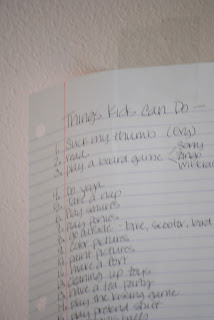 Things Kids Can Do -
1. Suck my thumb (Evy)
2. read
3. play a board game < Sorry
Bingo
4. Do yoga
5. take a nap
6. play smurfs
7. play ponies
8. go outside - bike, scooter,
9. color pictures
10. paint pictures
11. make a fort
12. cleaning up toys
13. have a tea party
14. play the kissing game
15. play pretend stuff